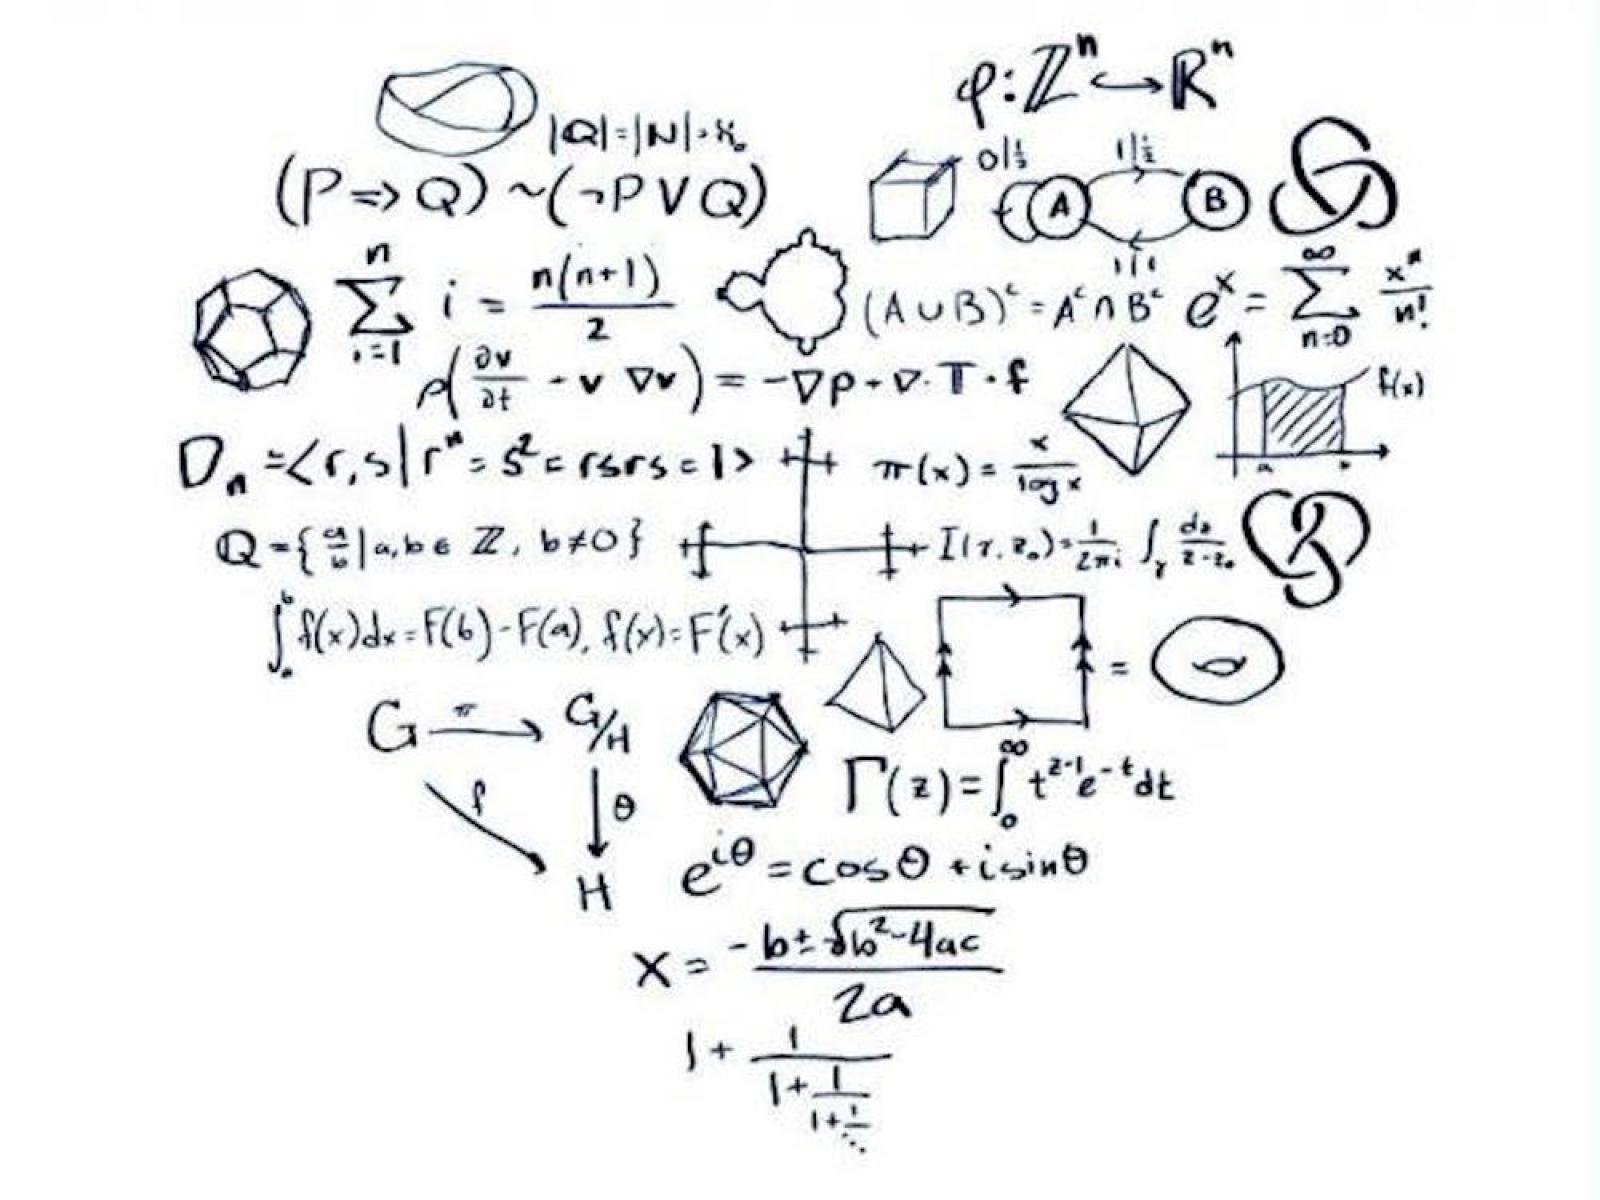 φ: ℤⁿ ↪ ℝⁿ
|Q| = |N| = ℵ₀
(P ⇒ Q) ~ (¬P ∨ Q)
0|½ 1|½
A B
1|1
∑ᵢ₌₁ⁿ i = n(n+1)/2
(A ∪ B)ᶜ = Aᶜ ∩ Bᶜ
eˣ = ∑ₙ₌₀^∞ xⁿ/n!
ρ(∂v/∂t - v ∇v) = -∇p + ∇·T · f
f(x)
a b
Dₙ = <r, s | rⁿ = s² = rsrs = 1>
π(x) = x/log x
Q = {a/b | a, b ∈ ℤ, b ≠ 0}
I(γ, z₀) = 1/2πi ∫_γ dz/z-z₀
∫ₐᵇ f(x)dx = F(b) - F(a), f(x) = F'(x)
=
G π G/H
f θ
H
Γ(z) = ∫₀^∞ t^(z-1) e^(-t) dt
e^(iθ) = cosθ + i sinθ
x = -b ± √b² - 4ac / 2a
1 + 1/1 + 1/1 + 1/⋱